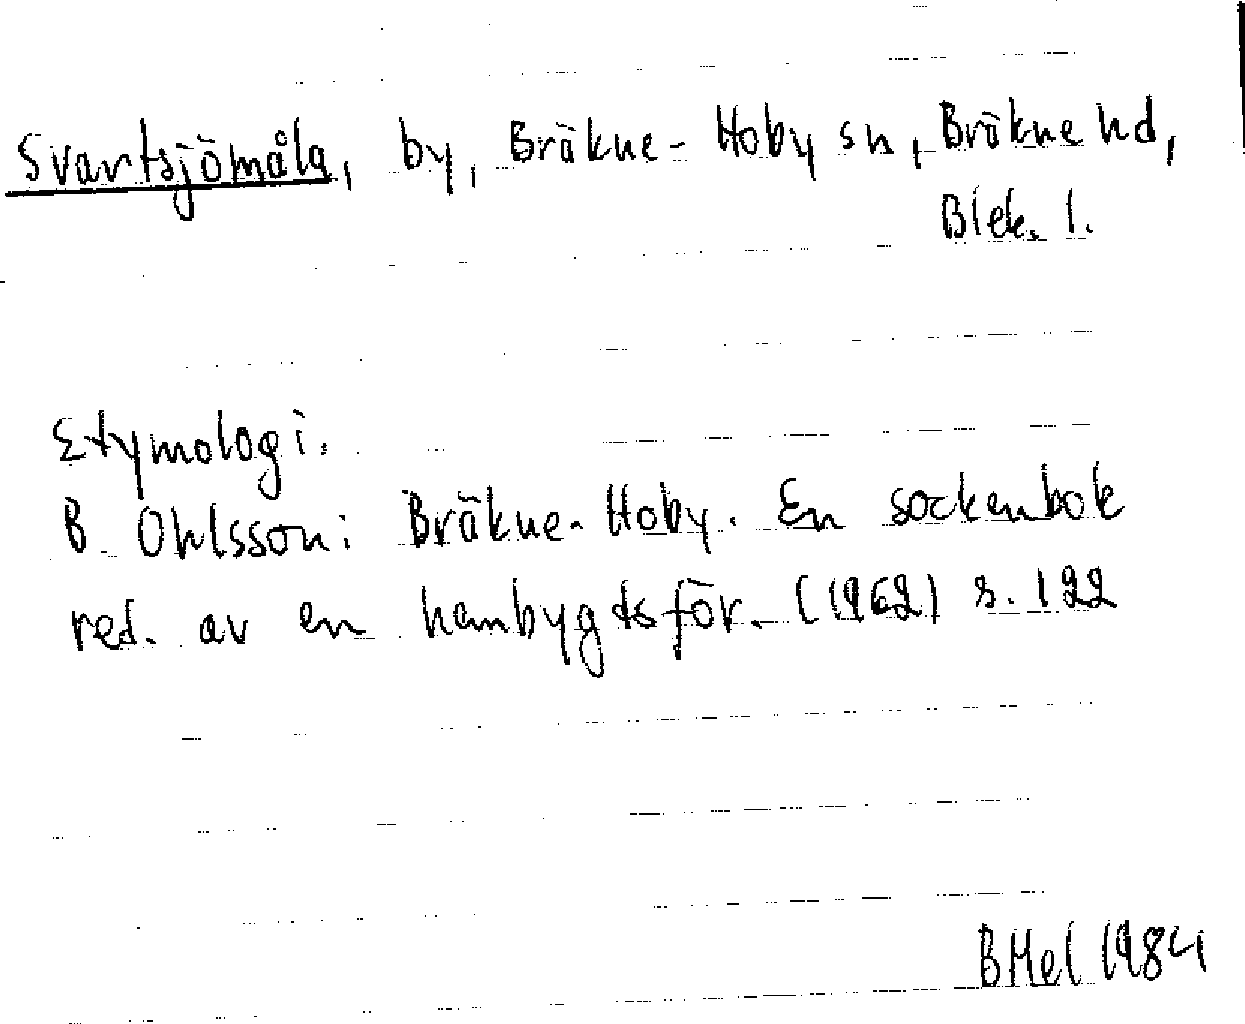 Svartsjömåla, by, Bräkne-Hoby sn, Bräkne hd,
Blek. l.
Etymologi.
B. Ohlsson i Bräkne-Hoby. En sockenbok
red. av en hembygdsför. (1962) s. 122
BHel 1984